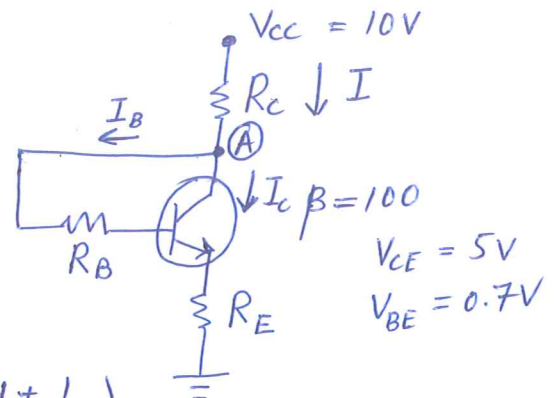 Vcc = 10V
Rc ↓ I
I_B ←
Ⓐ
↓ Ic β=100
R_B
V_CE = 5V
V_BE = 0.7V
R_E